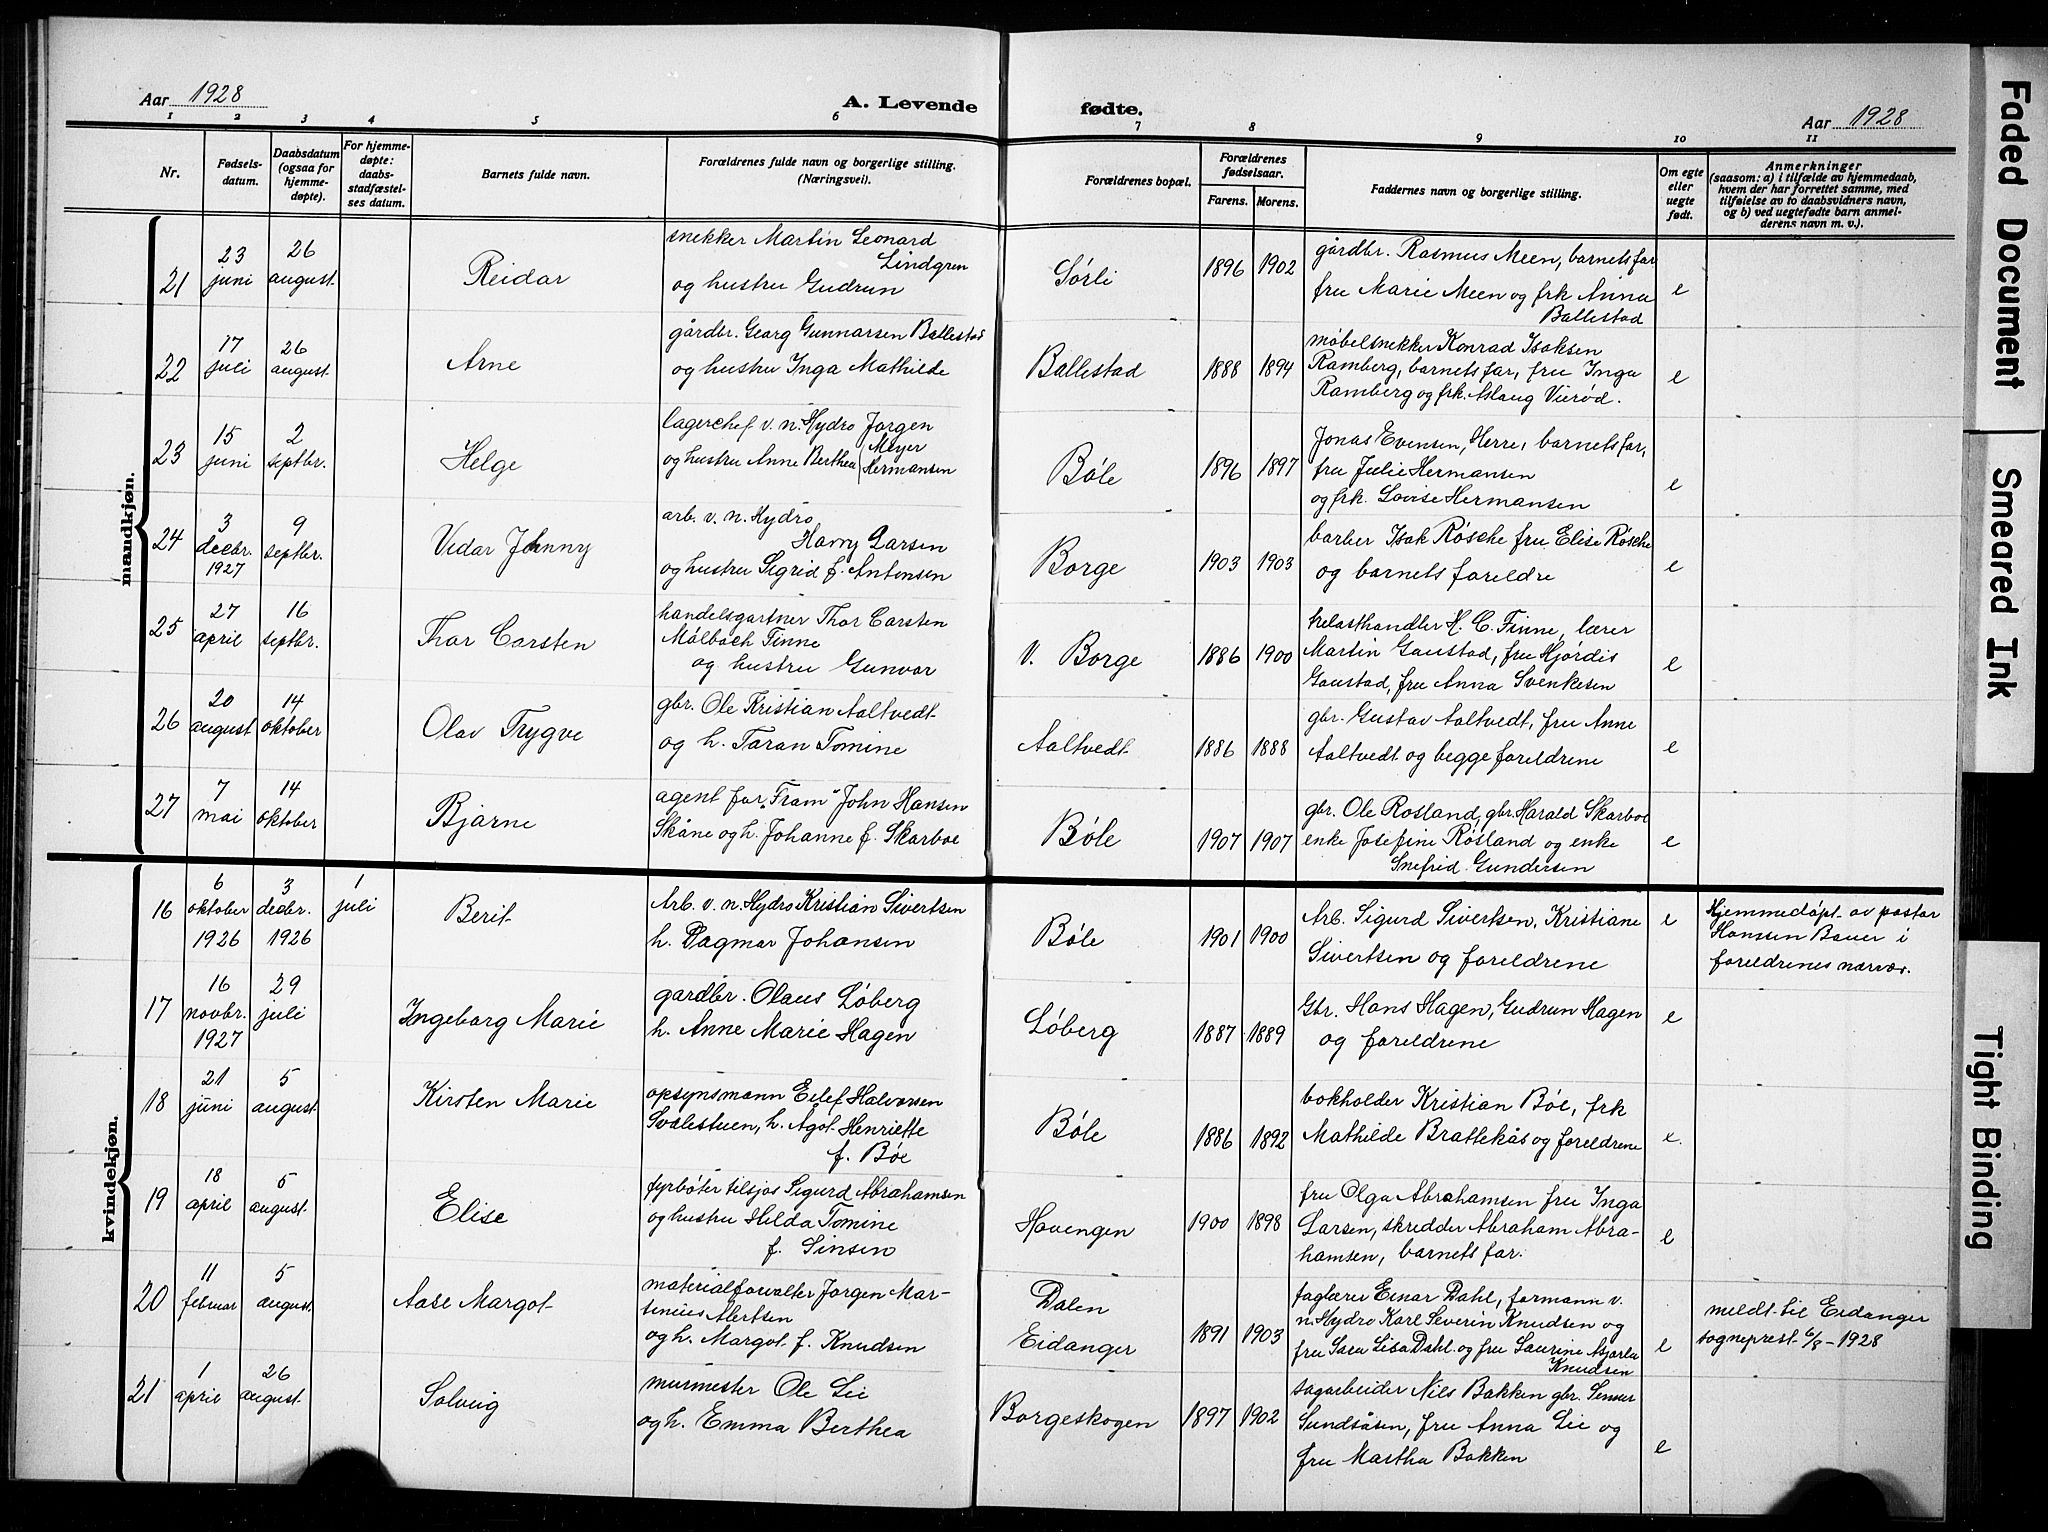 Aar 1928
A. Levende
fødte.
Aar 1928
1 2 3 4 5 6 7 8 9 10 11
Nr.
Fødsels-
datum.
Daabsdatum
(ogsaa for
hjemme-
døpte).
For hjemme-
døpte:
daabs-
stadfæstel-
ses datum.
Barnets fulde navn.
Forældrenes fulde navn og borgerlige stilling.
(Næringsvei).
Forældrenes bopæl.
Forældrenes
fødselsaar.
Farens. Morens.
Faddernes navn og borgerlige stilling.
Om egte
eller
uegte
født.
Anmerkninger
(saasom: a) i tilfælde av hjemmedaab,
hvem der har forrettet samme, med
tilføielse av to daabsvidners navn,
og b) ved uegtefødte barn anmel-
derens navn m. v.).
mandkjøn.
21
23
juni
26
august
Reidar
snekker Martin Leonard
Lindgren
og hustru Gudrun
Sørli
1896 1902
gårdbr. Rasmus Meen, barnets far
fru Marie Meen og frk Anna
Ballestad
e
22
17
juli
26
august
Arne
gårdbr. Georg Gunnarsen Ballestad
og hustru Inga Mathilde
Ballestad
1888 1894
møbelsnekker Konrad Isaksen
Ramberg, barnets far, fru Inga
Ramberg og frk. Aslaug Vierød.
e
23
15
juni
2
septbr.
Helge
lagerchef v. n. Hydro Jørgen
Meyer
og hustru Anne Berthea Hermansen
Bøle
1896 1897
Jonas Evensen, Herre, barnets far,
fru Julie Hermansen
og frk. Lovise Hermansen
e
24
3
decbr.
1927
9
septbr.
Vidar Johnny
arb. v. n. Hydro
Harry Larsen
og hustru Sigrid f. Antonsen
Borge
1903 1903
barber Isak Røsche fru Elise Røsche
og barnets foreldre
e
25
27
april
16
septbr.
Thor Carsten
handelsgartner Thor Carsten
Mølbach Finne
og hustru Gunvor
V. Borge
1886 1900
trelasthandler H. C. Finne, lærer
Martin Gaustad, fru Hjørdis
Gaustad, fru Anna Svenkesen
e
26
20
august
14
oktober
Olav Trygve
gbr. Ole Kristian Aaltvedt
og h. Taran Tomine
Aaltvedt
1886 1888
gbr. Gustav Aaltvedt, fru Anne
Aaltvedt og begge foreldrene
e
27
7
mai
14
oktober
Bjarne
agent for "Fram" John Hansen
Skåne og h. Johanne f. Skarboe
Bøle
1907 1907
gbr. Ole Rosland, gbr. Harald Skarboe
enke Josefine Røsland og enke
Snefrid Gundersen
e
kvindekjøn.
16
6
oktober
1926
3
decbr.
1926
1
juli
Berit
Arb. v. n. Hydro Kristian Sivertsen
h. Dagmar Johansen
Bøle
1901 1900
Arb. Sigurd Sivertsen, Kristiane
Sivertsen og foreldrene
e
Hjemmedøpt av pastor
Hansen Bauer i
foreldrenes nærvær.
17
16
novbr.
1927
29
juli
Ingeborg Marie
gardbr. Olaus Løberg
h. Anne Marie Hagen
Løberg
1887 1889
Gbr. Hans Hagen, Gudrun Hagen
og foreldrene
e
18
21
juni
5
august
Kirsten Marie
opsynsmann Eilef Halvorsen
Svalestuen, h. Agot Henriette
f. Bøe
Bøle
1886 1892
bokholder Kristian Bøe, frk
Mathilde Brattekås og foreldrene
e.
19
18
april
5
august
Elise
fyrbøter tilsjøs Sigurd Abrahamsen
og hustru Hilda Tomine
f. Sinsen
Havengen
1900 1898
fru Olga Abrahamsen fru Inga
Larsen, skredder Abraham Abra-
hamsen, barnets far.
e
20
11
februar
5
august
Aase Margot
materialforvalter Jørgen Mar-
tinius Alertsen
og h. Margot f. Knudsen
Dalen
Eidanger
1891 1903
faglærer Einar Dahl, formann v.
n. Hydro Karl Severin Knudsen og
fru Sara Lisa Dahl og fru Laurine
Knudsen
e
meldt til Eidanger
sogneprest 6/8 - 1928
21
1
april
26
august
Solveig
murmester Ole Lie
og h. Emma Berthea
Borgeskogen
1897 1902
sagarbeider Nils Bakken gbr.
Sundsåsen, fru Anna Lie og
fru Martha Bakken
e
Faded Document
Smeared Ink
Tight Binding